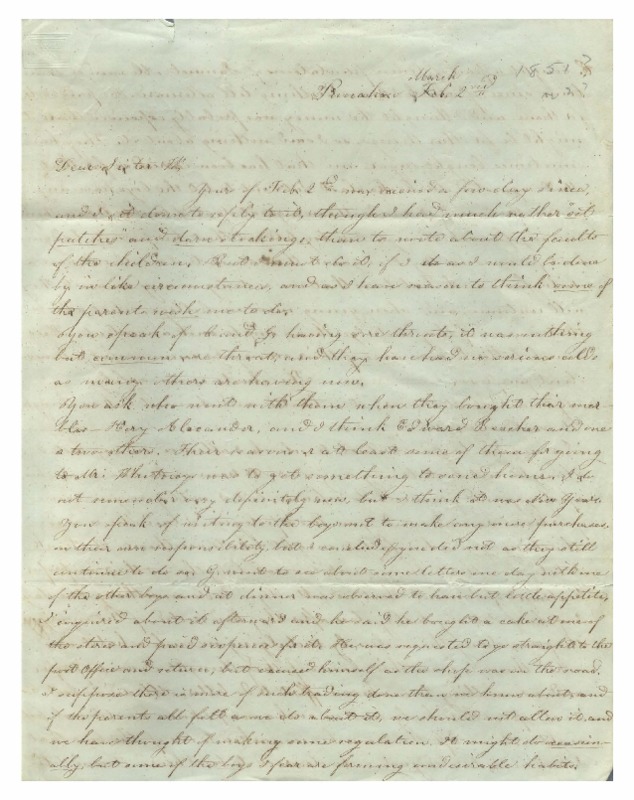 March 1851?
Punahou Feb. 2nd
Dear Sister
Yours of Feb. 2nd was received a few days since,
and I sit down to reply to it, though I had much rather "set
patches" and darn stockings, than to write about the faults
of the children. But I must do it, if I do as I would be done
by in like circumstances, and as I have reason to think some of
the parents wish me to do.
You speak of and G having sore throats, it was nothing
but common sore throat, and they have had no serious ails
as many others are having now.
You ask who went with them when they bought their mar-
bles Henry Alexander, and I think Edward Beecher and one
or two others. Their at least some of them for going
to Mr. Whitney was to get something to send home, I do
not remember very definitely now, but I think it was New Years.
You speak of writing to the boys not to make any more purchases
on their own responsibility, but I you did not as they still
continue to do so. G went to see about some letters one day with one
of the other boys and at dinner was observed to have but little appetite,
I inquired about it afterward and he said he bought a cake at one of
the stores and paid sixpence for it. He was requested to go straight to the
post Office and return, but excused himself as the shop was on the road.
I suppose there is more of such trading done than we know about, and
if the parents all felt as we do about it, we should not allow it and
we have thought of making some regulation. It might do occasion-
ally, but some of the boys I fear are forming undesirable habits.